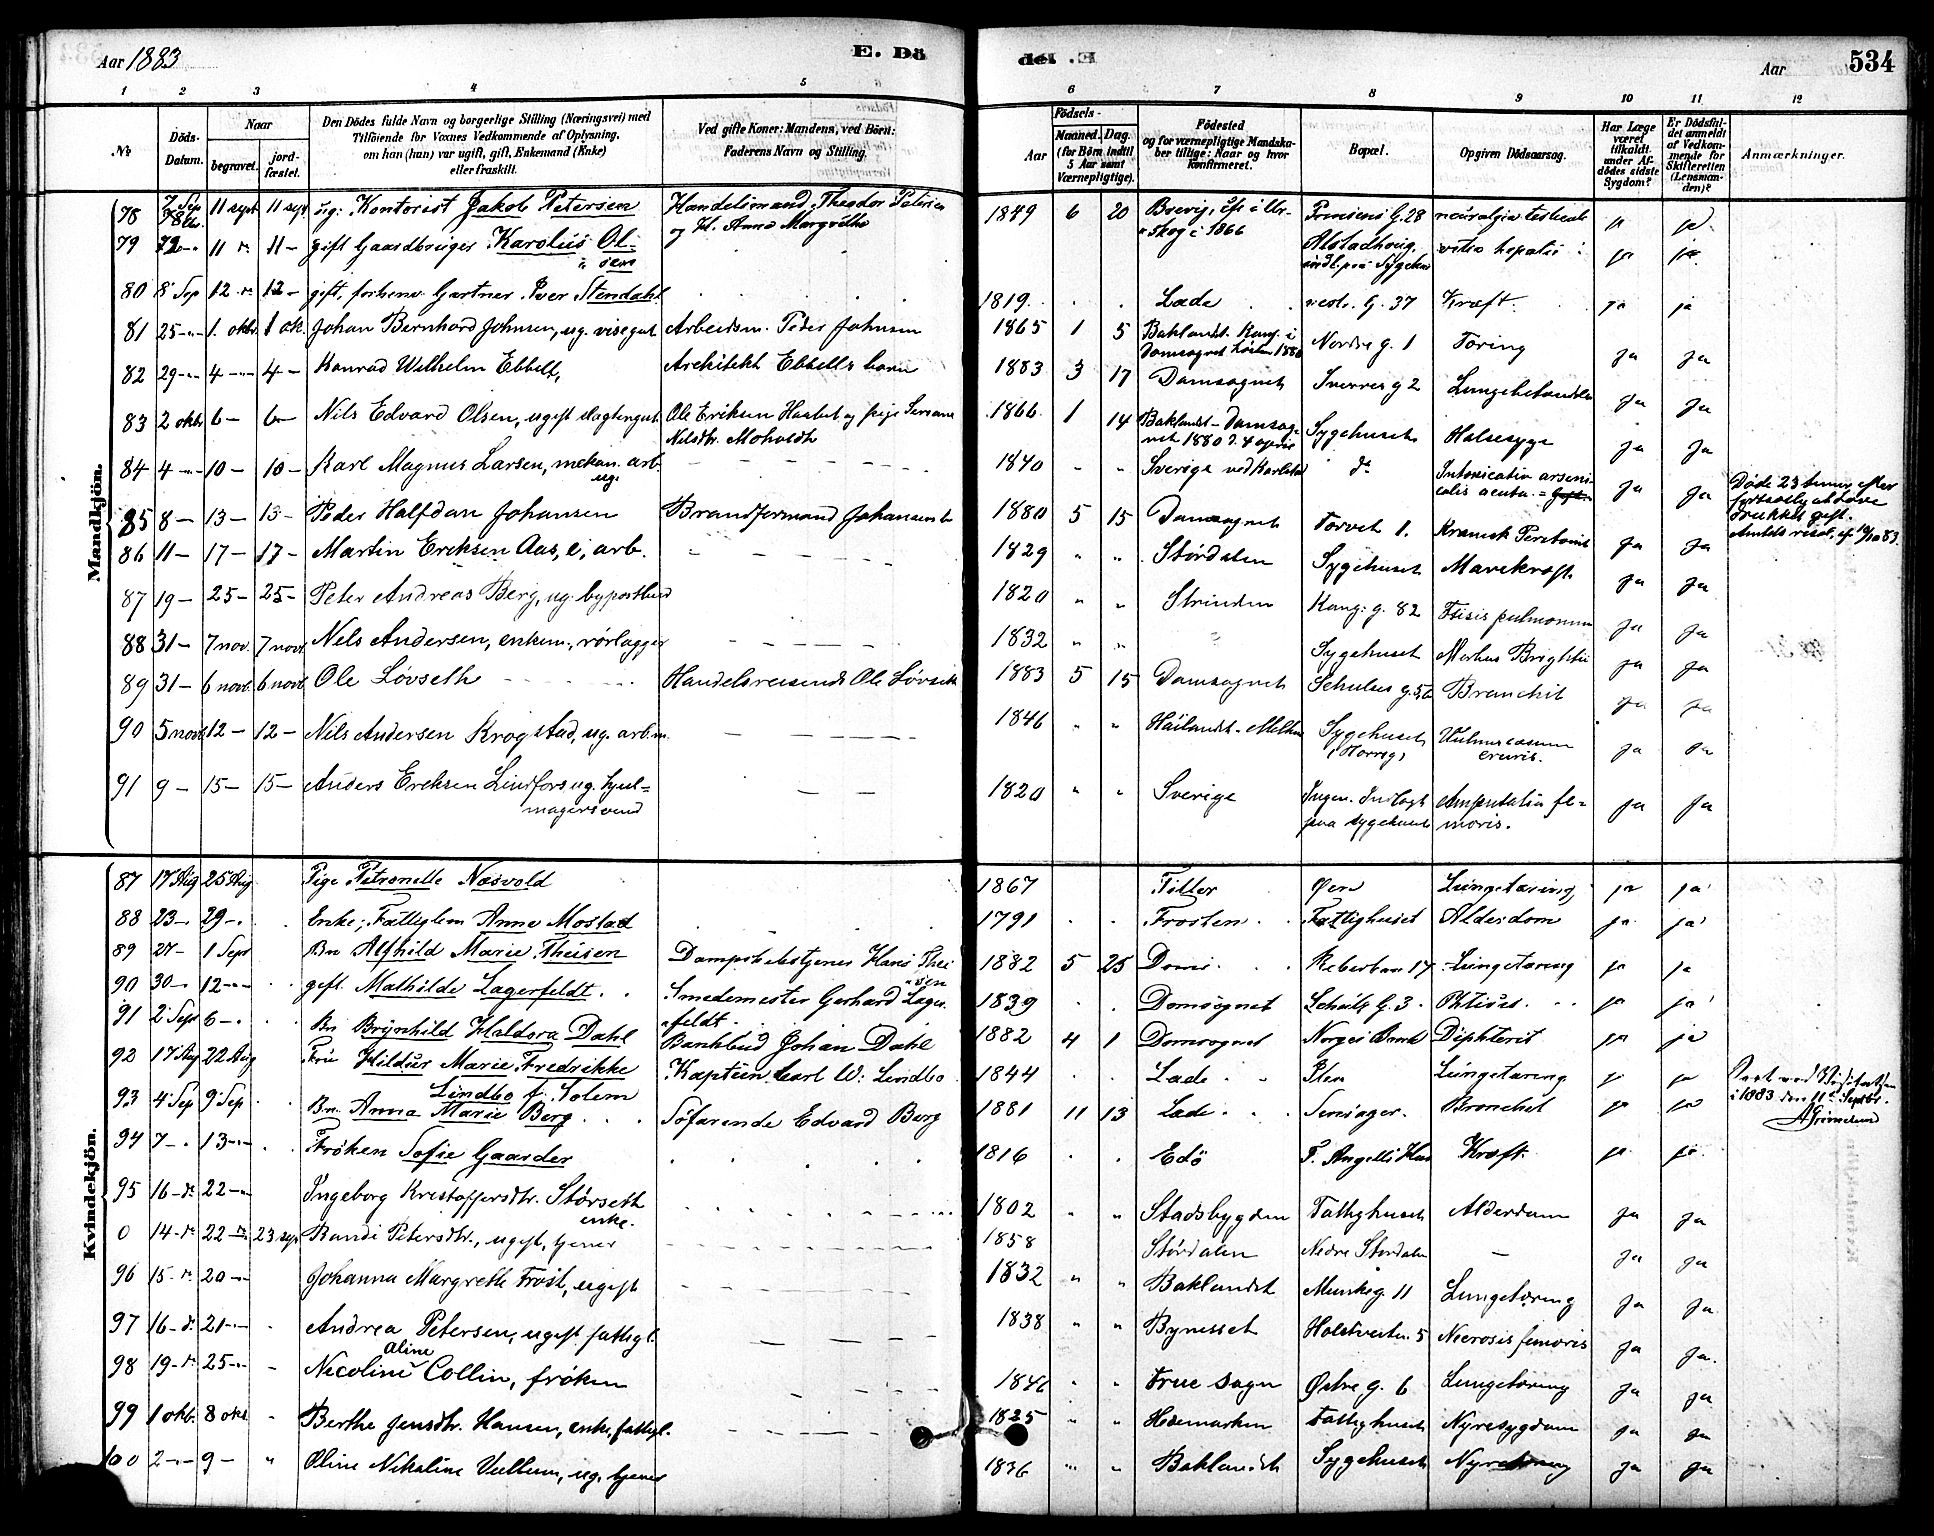 Aar 1883
E. Dö
döl .E
Aar
534
1 2 3 4 5 6 7 8 9 10 11 12
No
Döds-Datum.
Naar
begravet.
jord-fæstet.
Den Dödes fulde Navn og borgerlige Stilling (Næringsvei) med
Tilföiende for Voxnes Vedkommende af Oplysning,
om han (hun) var ugift, gift, Enkemand (Enke)
eller fraskilt.
Ved gifte Koner: Mandens, ved Börn:
Faderens Navn og Stilling.
Födsels-
Aar
Maaned. Dag.
(for Börn indtil
5 Aar samt
Værnepligtige).
Födested
og for værnepligtige Mandska-
ber tillige: Naar og hvor
konfirmeret.
Bopæl.
Opgiven Dödsaarsag.
Har Læge
været
tilkaldt
under Af-
dödes sidste
Sygdom?
Er Dödsfal-
det anmeldt
af Vedkom-
mende for
Skifteretten
(Lensman-
den)?
Anmærkninger.
Mandkjön.
78 7 Sep 11 sept 11 sept ug: Kontorist Jakob Petersen Handelsmand Theodor Petersen 1849 6 20 Brevig, Prinsens G. 28 neuralgia ja ja
og H. Anna Margrethe skog i 1866
79 11 11 gift Gaardbruger Karolus Ol- Alstadhoug, vitio hepatis ja ja
sen
80 8 Sep 12 12 gift, forhenv. Gartner Iver Stendahl 1819 Lade vestr. G. 37 Kræft ja ja
81 25 1. oktr 1 ok. Johan Bernhard Johnsen, ug. visegut Arbeidsm. Peder Johnsen 1865 1 5 Baklandt. Konf. i Nordre g. 1 Tæring ja ja
Domsognet høsten 1880
82 29 4 4 Konrad Wilhelm Ebbell, Arkitekt Ebbells barn 1883 3 17 Domsognet Sverres g 2 Lungebetændelse ja ja
83 2 oktr 6 6 Nils Edvard Olsen, ugift slagtergut Ole Eriksen og pige 1866 1 14 Baklandet - Domsog- Sygehuset Halsesyge ja ja
Nilsdtr. Moholdt net 1880 d. 4 april
84 4 10 10 Karl Magnus Larsen, mekan. arb. 1840 Sverige ved Karlstad do Intoxicatio arseni- ja ja Døde 23 timer efter
ug. calis acuta
drukket gift.
85 8 13 13 Peder Halfdan Johansen Brandformand Johansens b 1880 5 15 Domsognet Torvet 1. ja ja
86 11 17 17 Martin Eriksen Aas, e, arb. 1829 Størdalen Sygehuset Mavekræft ja ja
87 19 25 25 Peter Andreas Berg, ug. bypostbud 1820 Strinden Kong: g. 82 Ftisis pulmonum ja ja
88 31 7 nov. 7 novr Nels Andersen, enkem., rørlægger 1832 Sygehuset Morbus Brightii ja ja
89 31 6 novb. 6 novb Ole Løvseth Handelsreisende Ole Løvseth 1883 5 15 Domsognet Schultes g. Bronchit ja ja
90 5 novb. 12 12 Nils Andersen Krogstad, ug. arb.m. 1846 Høilandet - Sygehuset ja ja
cruris.
91 9 15 15 Anders Ereksen Lindfors ug. hjul- 1820 Sverige Ingen. Indlagt Amputatio fe- ja ja
magersvend paa sygehuset moris.
Kvindekjön.
87 17 Aug 25 Aug Pige Petronelle Næsvold 1867 Tiller Øen Lungetæring, ja ja
88 23 29 Enke, Fattiglem Anne Mostad 1791 Frosten Fattighuset Alderdom ja ja
89 27 1 Sept Bn Alfhild Marie Theisen Hans Thei 1882 5 25 Doms. Reberban 17 Lungetæring ja ja
sen
90 30 12 gift Mathilde Lagerfeldt Smedemester Gerhard Lager 1839 Domsognet Schultz G. 3 ja ja
91 2 Sept 6 Bn Brynhild Haldora Dahl feldt Bankbud Johan Dahl 1882 4 1 Domsognet Norges Bank Diphterit ja ja
92 17 Aug 22 Aug Fru Hildur Marie Fredrikke Kaptein Carl W: Lindbo 1844 Lade Lungetæring ja ja
Lindbo f. Solem
93 4 Sep 9 Sep Bn. Anna Marie Berg Søfarende Edvard Berg 1881 11 13 Lade Bronchit ja ja
i 1883 den 11te Septbr.
94 7 13 Frøken Sofie Gaarder 1816 Edö T. Angells Hus Kræft ja ja
95 16 22 Ingeborg Kristoffersdtr. Størseth 1802 Stadsbygden Fattighuset Alderdom ja ja
enke.
0 14 22 23 sep Randi Petersdtr., ugift, tjener 1858 Størdalen Nedre Stordalen — ja ja
96 15 20 Johanna Margrethe Frost, ugift 1832 Baklandet Munkeg. 11 Lungetæring ja ja
97 16 21 Andrea Petersen, ugift fattigl. 1838 Bynesset Holstveiten 5 Necrosis femoris ja ja.
98 19 25 Necoline Aline Collin, frøken 1846 Frue sogn Østre g. 6 Lungetæring ja ja
99 1 okb. 8 okt Berthe Jensdtr. Hansen, enke, fattigl. 1825 Hedemarken Fattighuset Nyresygdom ja ja
100 2 9 Oline Nikoline Vullum, ug. tjener 1836 Baklandet Sygehuset ja ja